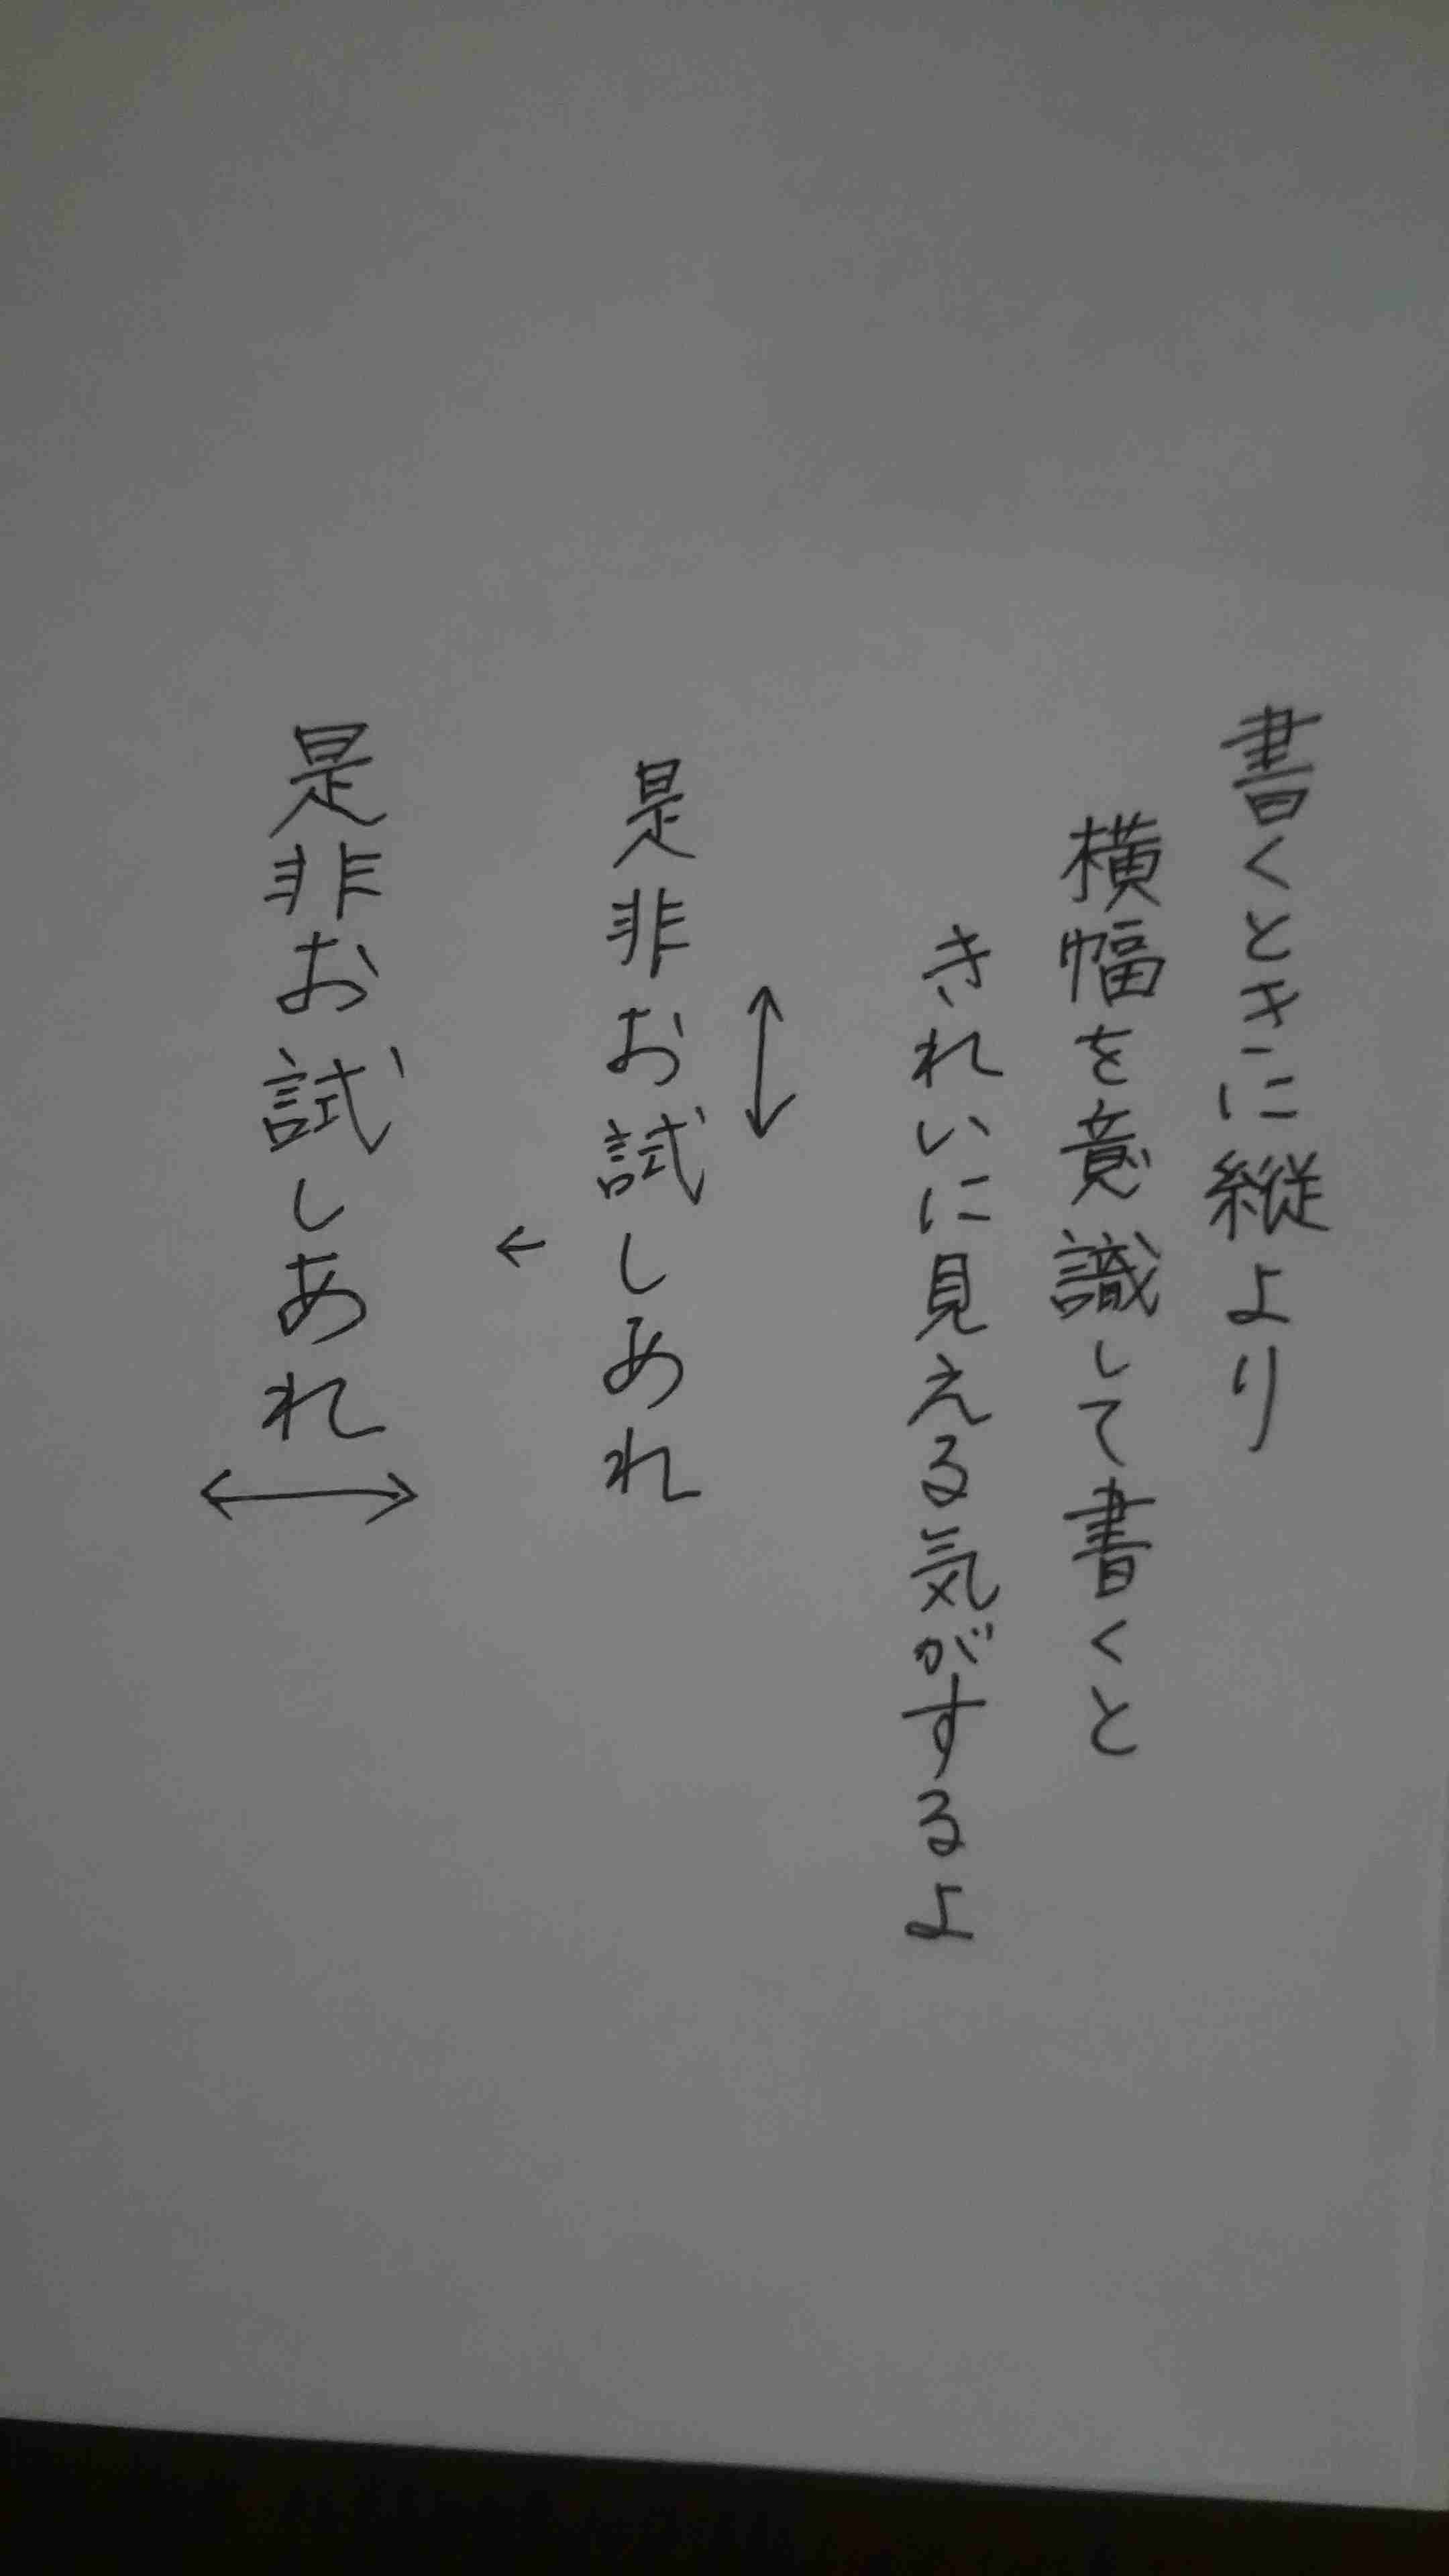 書くときに縦より
横幅を意識して書くと
きれいに見える気がするよ
是非お試しあれ
是非お試しあれ